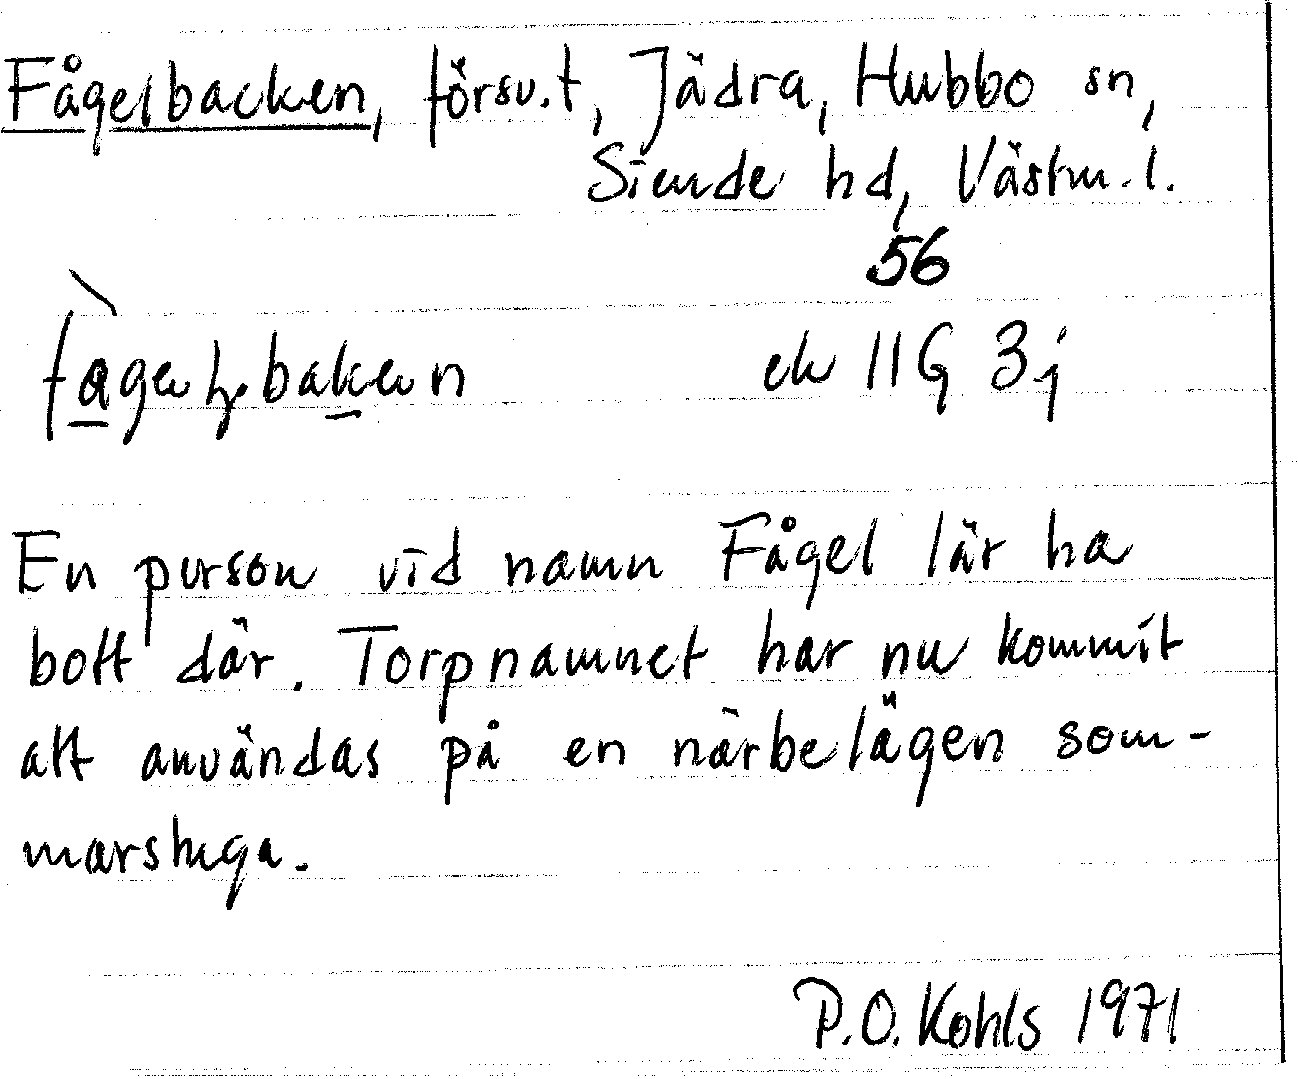 Fågelbacken, försv. t, Jädra, Hubbo sn,
Siende hd, Västm. l.
56
ek 11G 3j
En person vid namn Fågel lär ha
bott där. Torpnamnet har nu kommit
att användas på en närbelägen som-
marstuga.
P.O. Kohls 1971